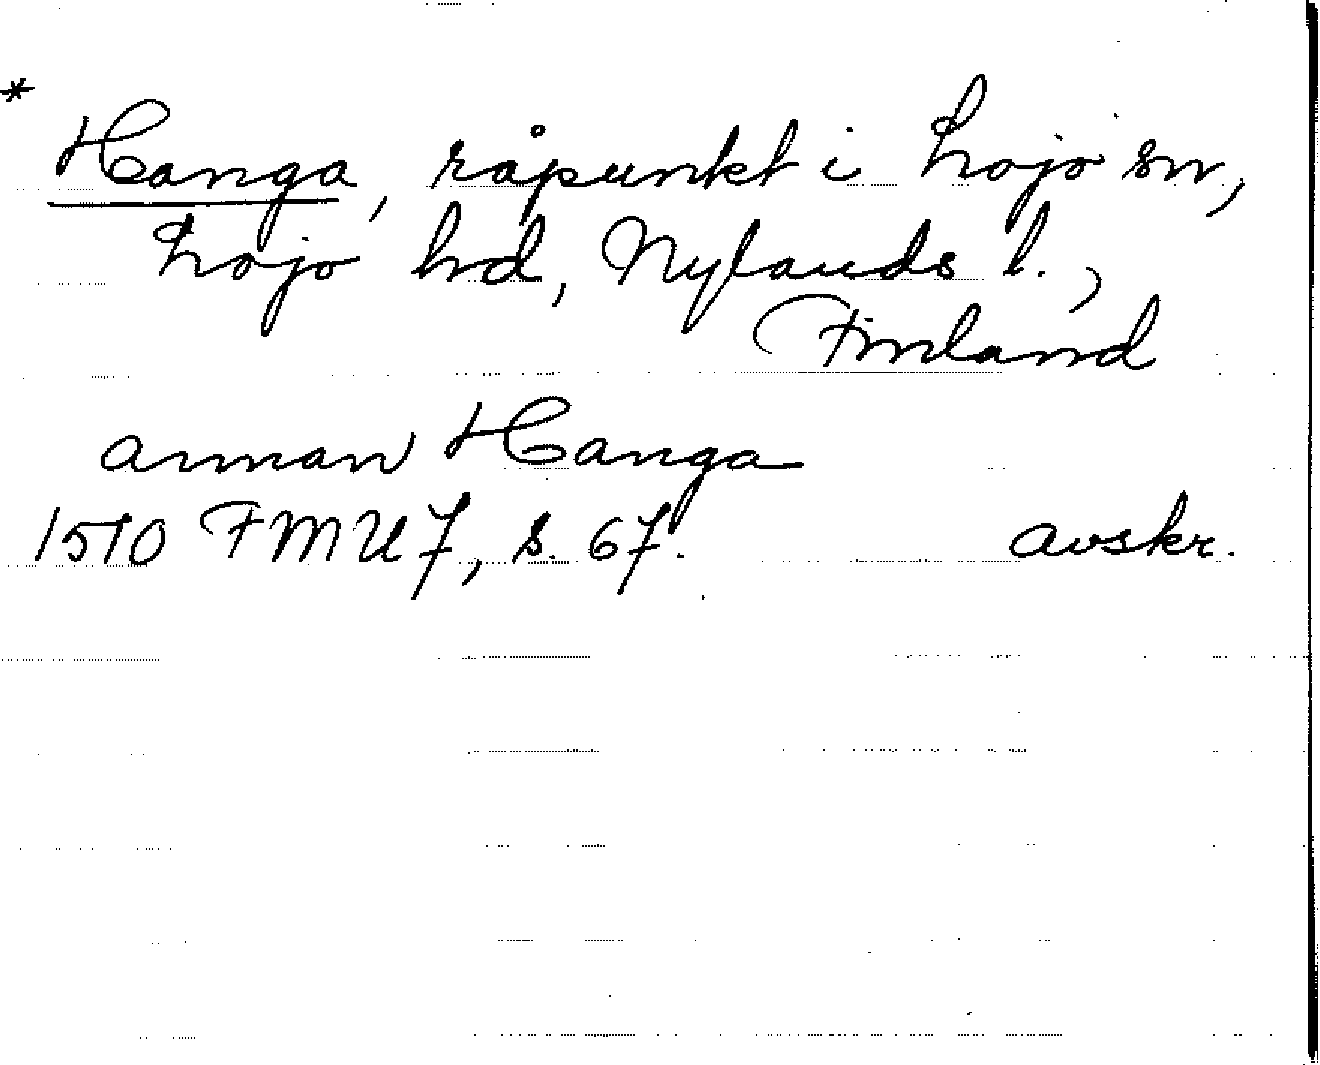 * Hanga, råpunkt i Lojo sn,
Lojo hd, Nylands l.,
Finland
annan Hanga
1510 FMU 7, s. 67. avskr.